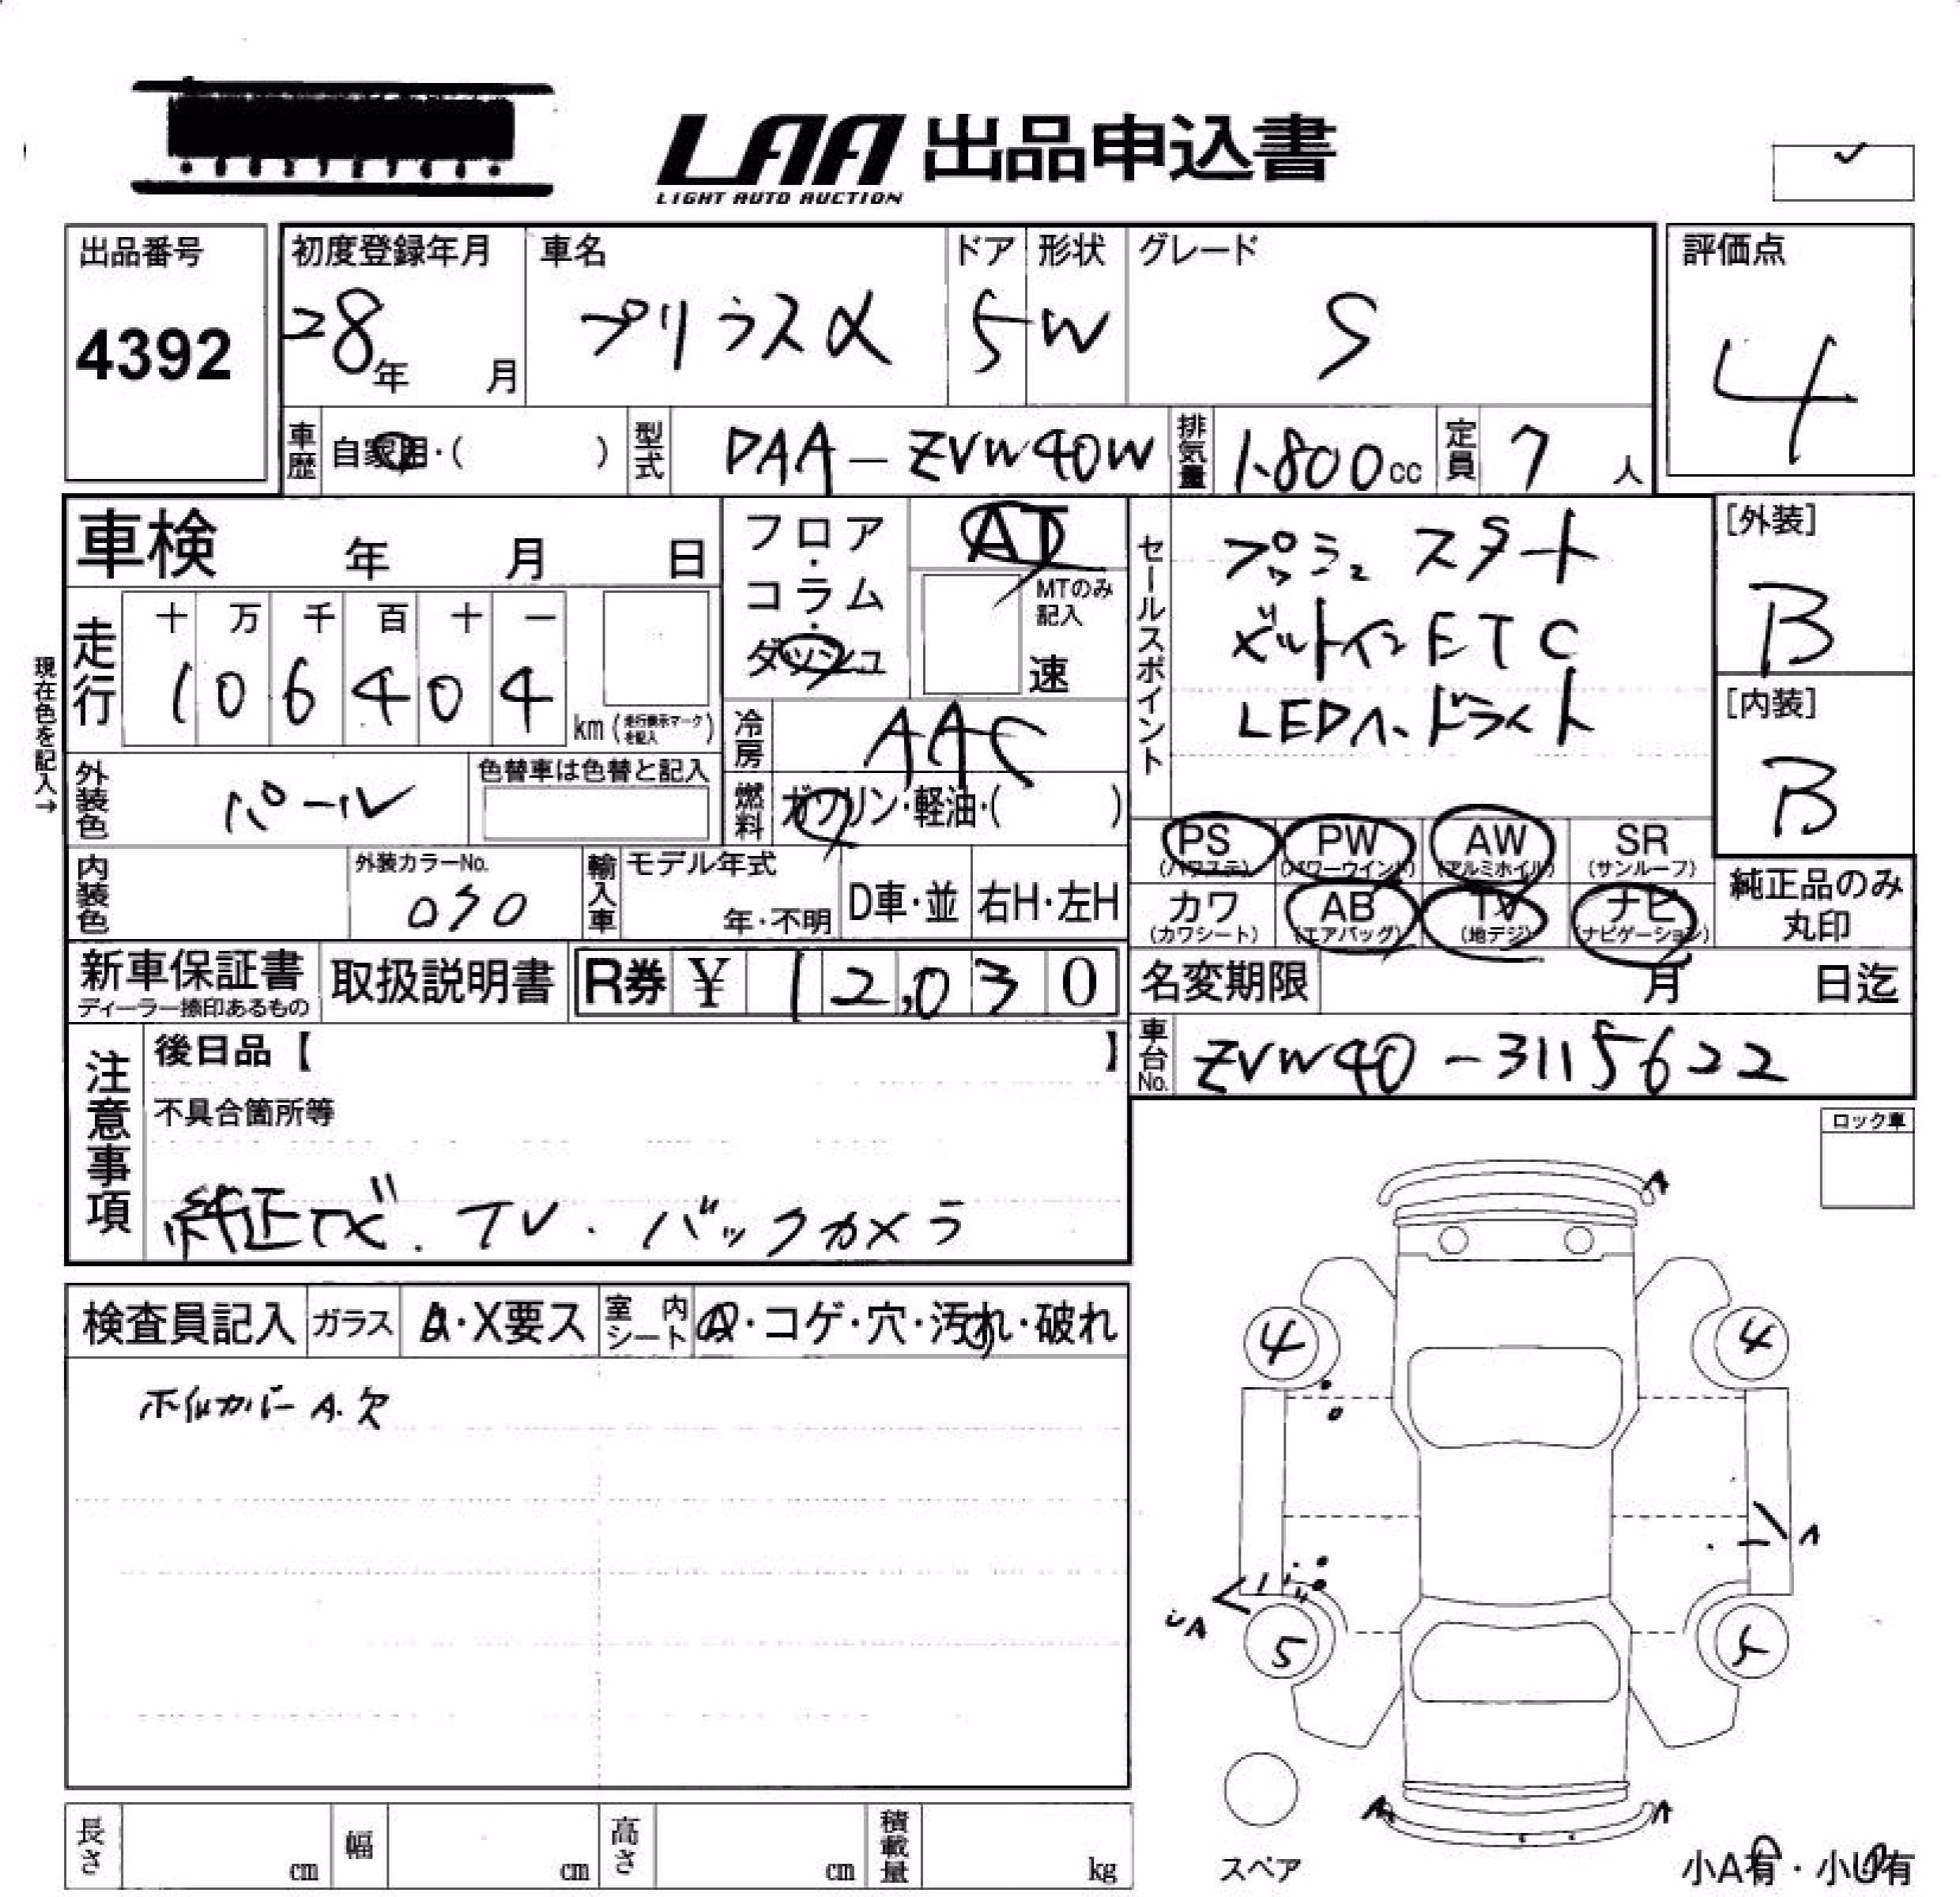 LAA 出品申込書
LIGHT AUTO AUCTION
出品番号
4392
初度登録年月
28年 月
車名
プリウスα
ドア
5
形状
W
グレード
S
評価点
4
車歴 自家用・( )
型式 DAA-ZVW40W
排気量 1.800cc
定員 7人
車検 年 月 日
現在色を記入→
走行
十 万 千 百 十 一
1 0 6 4 0 4
km (走行表示マークを記入)
フロア・コラム・ダッシュ
AT
MTのみ記入
速
冷房 AAC
燃料 ガソリン・軽油・( )
外装色 パール
色替車は色替と記入
内装色
外装カラーNo.
070
輸入車
モデル年式
年・不明
D車・並
右H・左H
セールスポイント
プッシュスタート
ビルトインETC
LEDヘッドライト
[外装]
B
[内装]
B
PS (パワステ)
PW (パワーウインド)
AW (アルミホイル)
SR (サンルーフ)
カワ (カワシート)
AB (エアバッグ)
TV (地デジ)
ナビ (ナビゲーション)
純正品のみ丸印
新車保証書
ディーラー捺印あるもの
取扱説明書
R券 ¥ 12,030
名変期限 月 日迄
車台No. ZVW40-3115622
注意事項
後日品【 】
不具合箇所等
純正ナビ. TV. バックカメラ
ロック車
検査員記入
ガラス
A・X要ス
室内シート
・コゲ・穴・汚れ・破れ
カバー A.欠
A
4 4
A
A
5 5
A A
スペア
小A有・小U有
長さ cm
幅 cm
高さ cm
積載量 kg